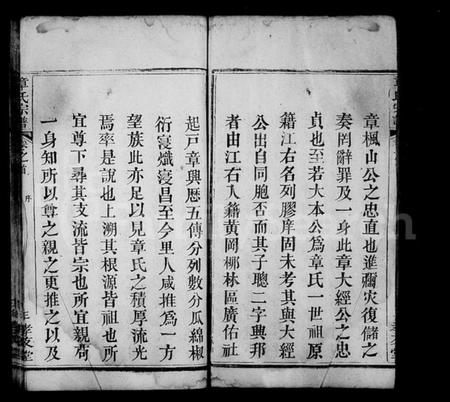 章楓山公之忠直也進彌災復儲之
奏罔辭罪及一身此章大經公之忠
貞也至若大本公為章氏一世祖原
籍江右名列膠庠固未考其與大經
公出自同胞否而其子聰二字與邦
者由江右入籍黃岡栁林區廣佑社
起戸章興歷五傳分列數分瓜綿椒
衍寖熾寖昌至今里人咸推為一方
望族此亦足以見章氏之積厚流光
焉率是說也上溯其根源皆祖也所
宜尊下尋其支流皆宗也所宜親苟
一身知所以尊之親之更推之以及
章氏宗譜
卷之首
孝友堂